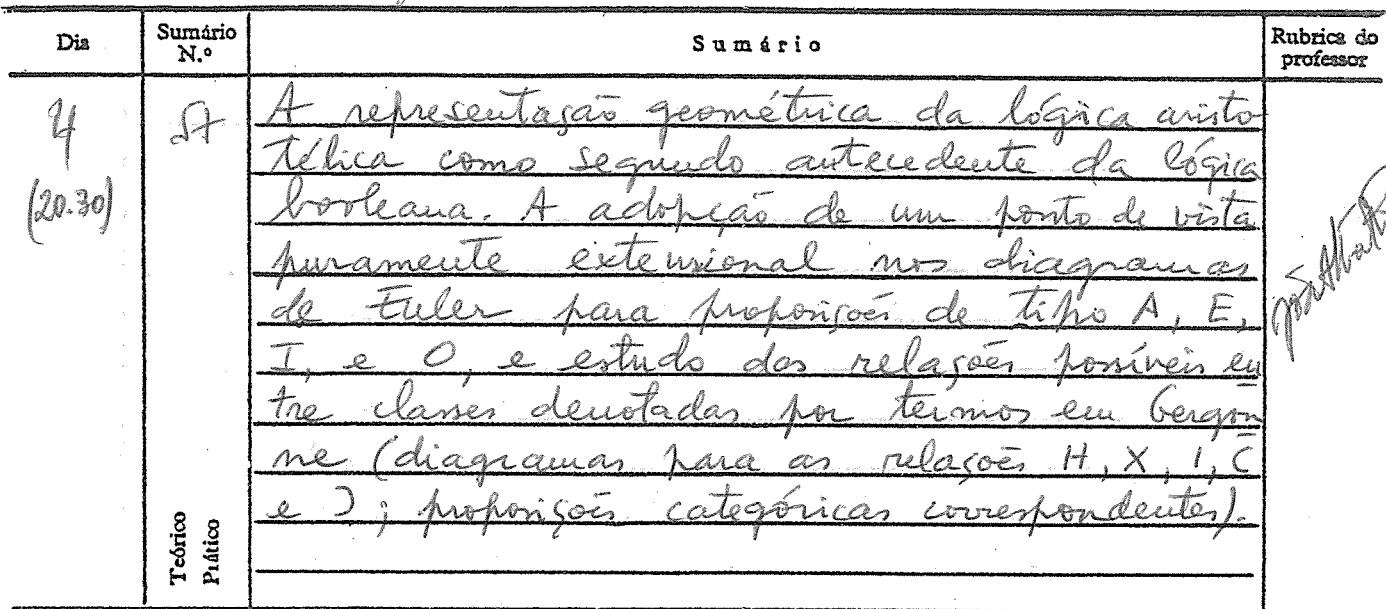 Dia Sumário N.º Sumário Rubrica do professor
4 57 A representação geométrica da lógica aristo
(20.30) télica como segundo antecedente da lógica
booleana. A adopção de um ponto de vista
puramente extensional nos diagramas
de Euler para proposições de tipo A, E,
I, e O, e estudo das relações possíveis en
tre classes denotadas por termos em Gergon
ne (diagramas para as relações H, X, I, C
e Ɔ; proposições categóricas correspondentes).
Teórico
Prático